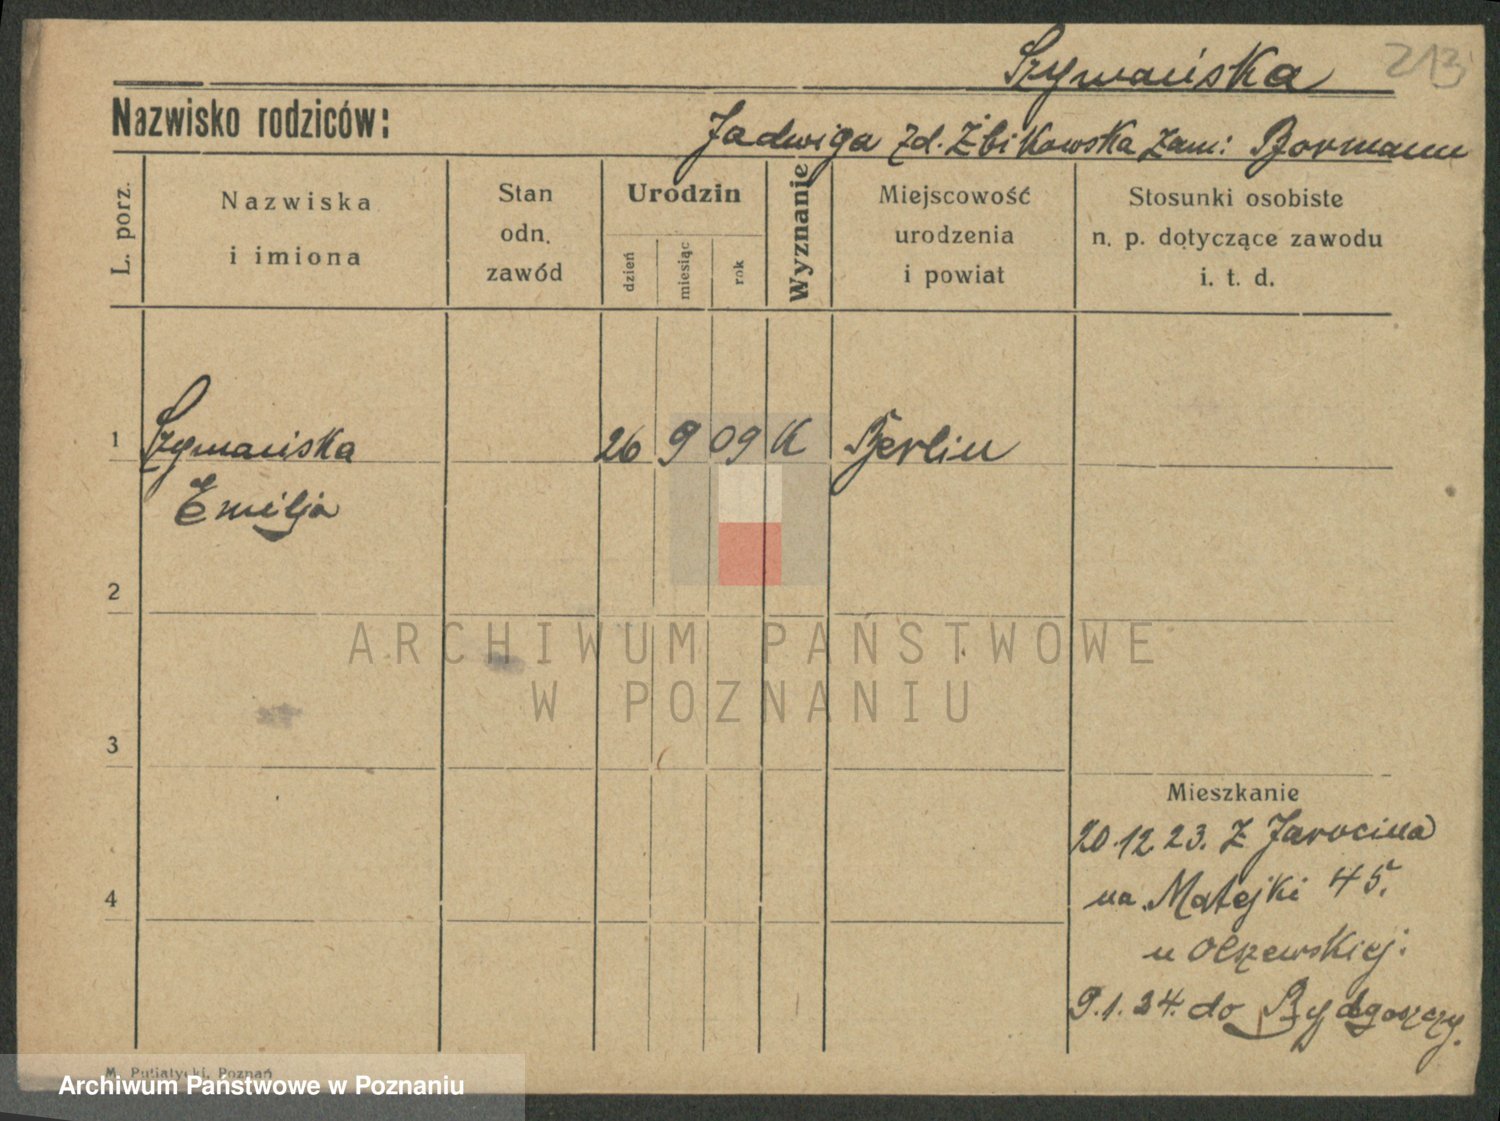 Szymańska
213
Nazwisko rodziców:
Jadwiga zd. Żbikowska zam: Bormann
L. porz.
Nazwiska
i imiona
Stan
odn.
zawód
Urodzin
dzień
miesiąc
rok
Wyznanie
Miejscowość
urodzenia
i powiat
Stosunki osobiste
n. p. dotyczące zawodu
i. t. d.
1 Szymańska 26 9 09 K Berlin
Emilja
2
ARCHIWUM PAŃSTWOWE
W POZNANIU
3
Mieszkanie
20.12.23. Z Jarocina
4
na Matejki 45.
u Olszewskiej:
9.1.24. do Bydgoszczy.
M. Putiatycki, Poznań
Archiwum Państwowe w Poznaniu